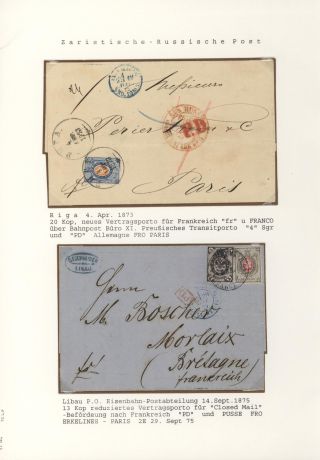 Zaristische-Russische Post
Messieurs
Perier
P.D.
Paris
Riga 4. Apr. 1873
20 Kop. neues Vertragsporto für Frankreich "fr" u FRANCO
über Bahnpost Büro XI. Preußisches Transitporto "4" Sgr
und "PD" Allemagne FRO PARIS
Herrn
M. Boscher
Morlaix
Bretagne
frankreich
Libau P.O. Eisenbahn-Postabteilung 14.Sept.1875
13 Kop reduziertes Vertragsporto für "Closed Mail"
-Beförderung nach Frankreich "PD" und PUSSE FRO
ERKELINES - PARIS 2E 29. Sept 75